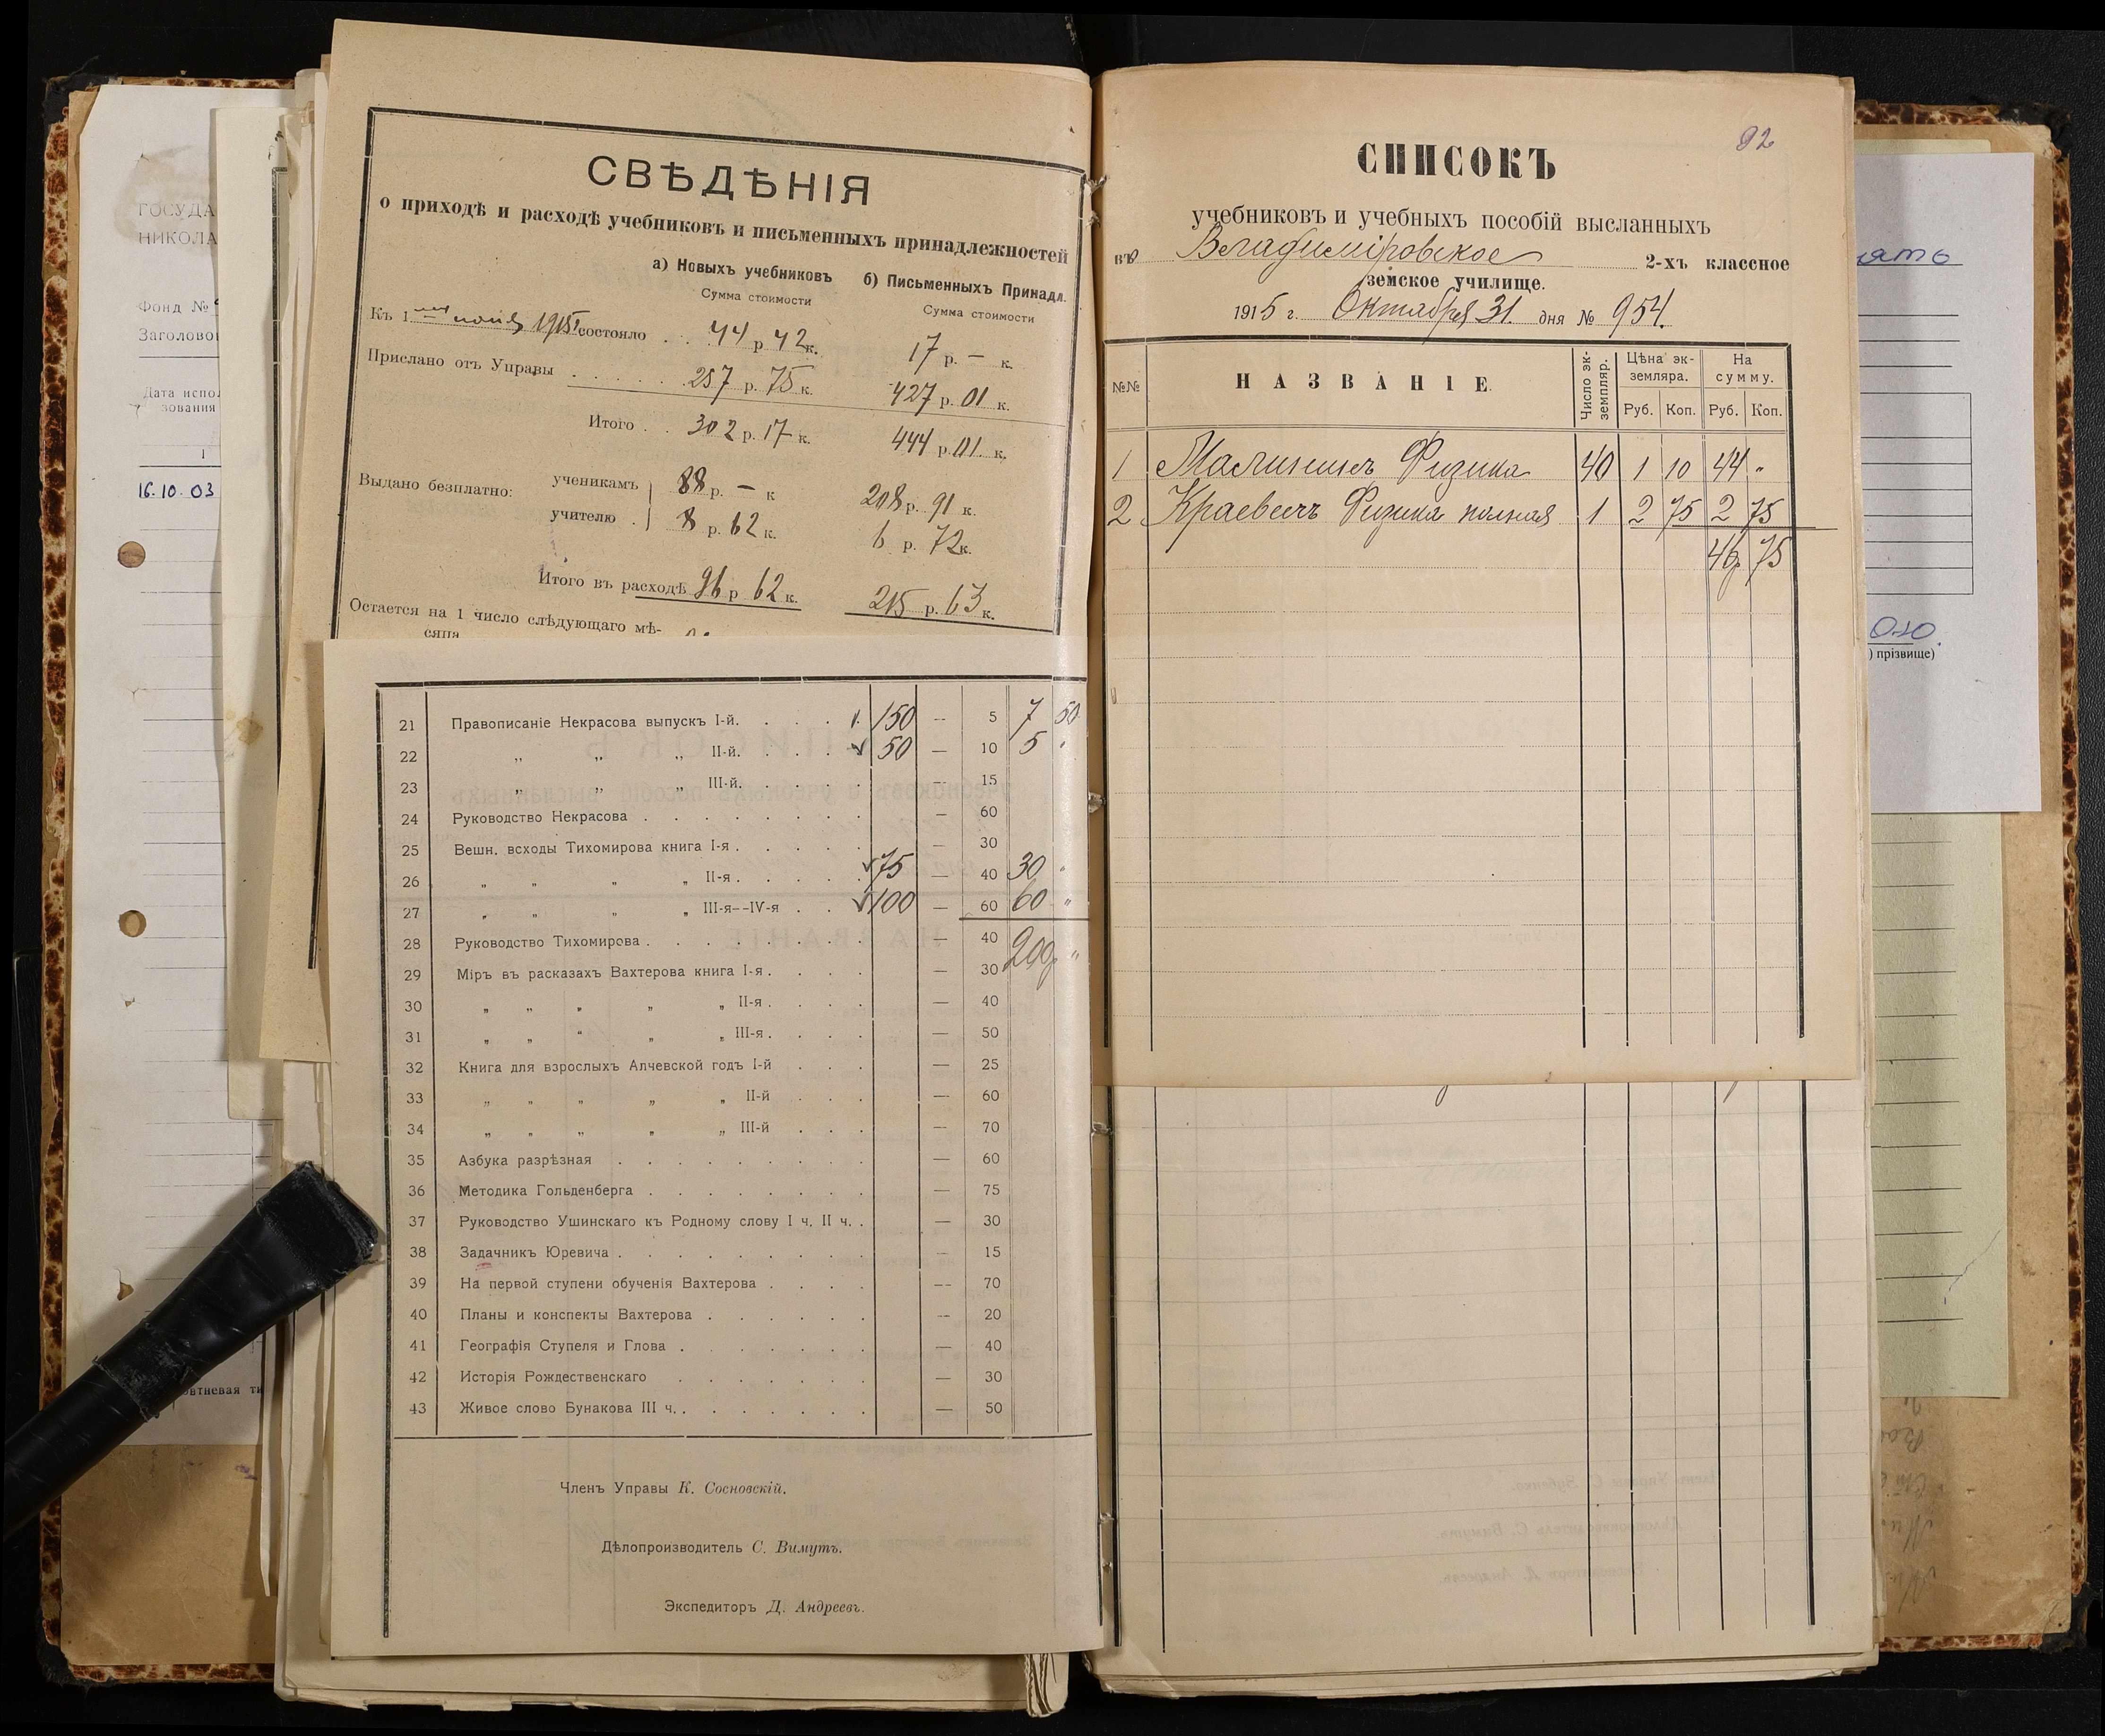 ГОСУДА
НИКОЛА
Фонд №
Заголово
Дата испол
зования
1
16.10.03
СВѢДѢНІЯ
о приходѣ и расходѣ учебниковъ и письменныхъ принадлежностей
а) Новыхъ учебниковъ б) Письменныхъ Принадл.
Сумма стоимости Сумма стоимости
Къ 1 1915 состояло . . 44 р 42 к. 17 р. — к.
Прислано отъ Управы . . . . . . 257 р. 75 к. 427 р. 01 к.
Итого . . 302 р. 17 к. 444 р. 01 к.
Выдано безплатно: ученикамъ 88 р. — к 208 р. 91 к.
учителю . 8 р. 62 к. 6 р. 72 к.
Итого въ расходѣ 96 р 62 к. 215 р. 63 к.
Остается на 1 число слѣдующаго мѣ-
сяца
21 Правописаніе Некрасова выпускъ I-й. . . . 150 — 5 7 50
22 „ „ „ II-й. . . . 50 — 10 5 "
23 „ „ „ III-й. . . . — 15
24 Руководство Некрасова . . . . . . . . — 60
25 Вешн. всходы Тихомирова книга I-я . . . . . — 30
26 „ „ „ „ II-я . . . . . 75 — 40 30 "
27 „ „ „ „ III-я--IV-я . . . 100 — 60 60 "
28 Руководство Тихомирова . . . . . . . . — 40 200р "
29 Міръ въ расказахъ Вахтерова книга I-я . . . . — 30
30 „ „ „ „ „ II-я . . . . — 40
31 „ „ “ „ „ III-я . . . . — 50
32 Книга для взрослыхъ Алчевской годъ I-й . . . — 25
33 „ „ „ „ „ II-й . . . — 60
34 „ „ „ „ „ III-й . . . — 70
35 Азбука разрѣзная . . . . . . . . . — 60
36 Методика Гольденберга . . . . . . . . — 75
37 Руководство Ушинскаго къ Родному слову I ч. II ч. . — 30
38 Задачникъ Юревича . . . . . . . . . — 15
39 На первой ступени обученія Вахтерова . . . . — 70
40 Планы и конспекты Вахтерова . . . . . . — 20
41 Географія Ступеля и Глова . . . . . . . — 40
42 Исторія Рождественскаго . . . . . . . — 30
43 Живое слово Бунакова III ч. . . . . . . . — 50
Членъ Управы К. Сосновскій.
Дѣлопроизводитель С. Вимутъ.
Экспедиторъ Д. Андреевъ.
92
СПИСОКЪ
учебниковъ и учебныхъ пособій высланныхъ
въ Владиміровское 2-хъ классное
земское училище.
1915 г. Октября 31 дня № 954.
№№ НАЗВАНІЕ. Число эк-земпляр. Цѣна эк-земляра. На сумму.
Руб. Коп. Руб. Коп.
1 Малининъ Физика 40 1 10 44 "
2 Краевичъ Физика полная 1 2 75 2 75
46р 75
ять
) прізвище)